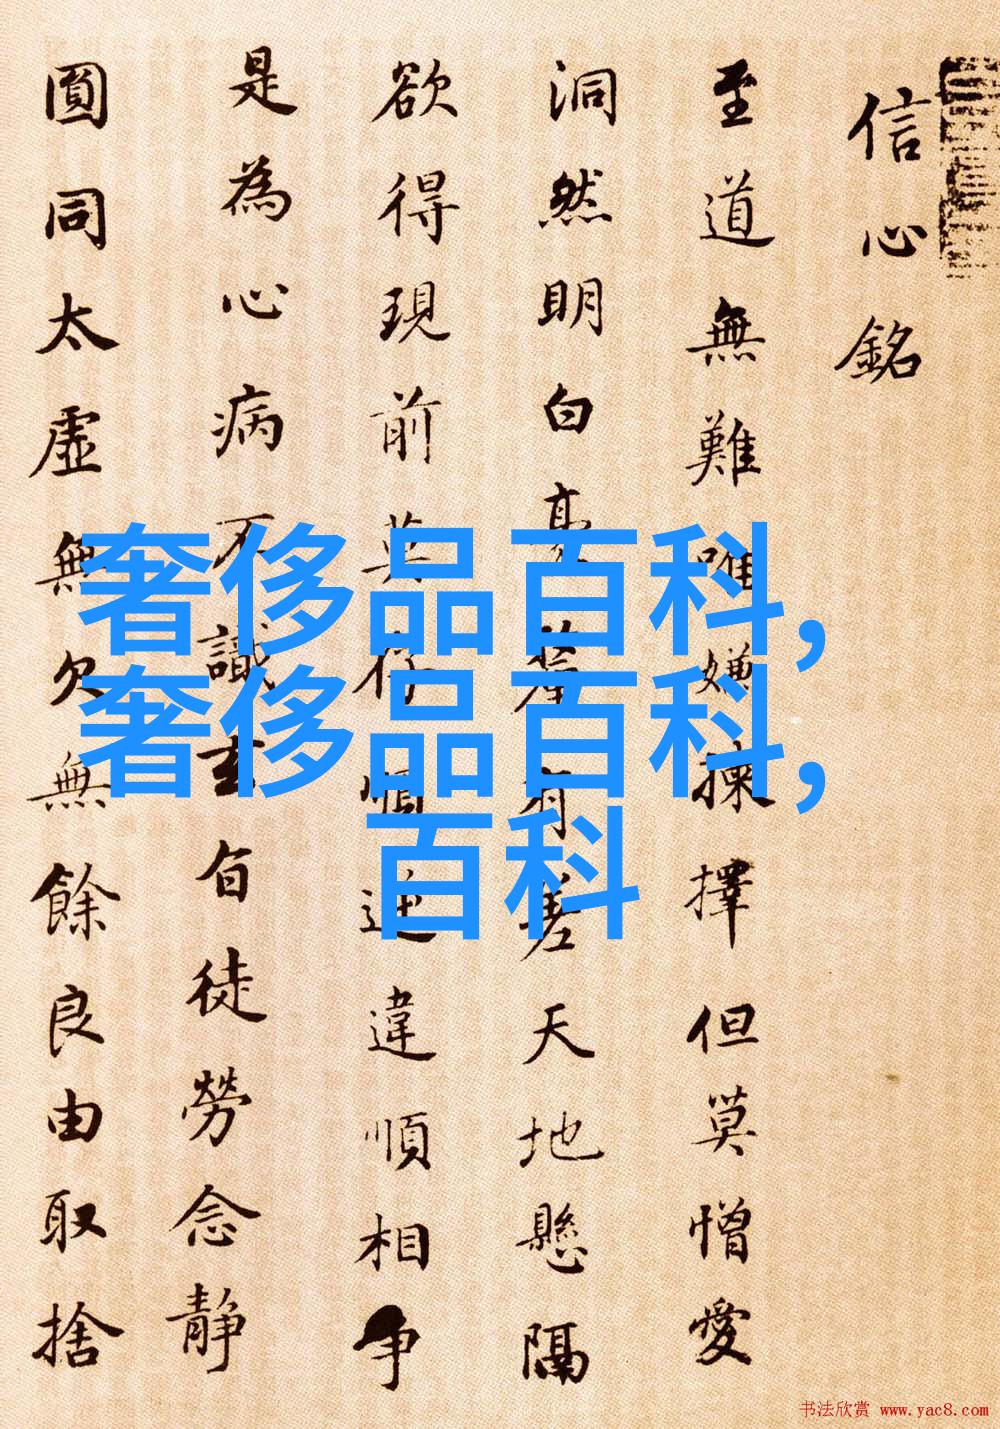 信心銘
至道無難唯嫌揀擇但莫憎愛
洞然明白毫有差天地懸隔
欲得現前莫存順逆違順相争
是為心病不識玄旨徒勞念静
圓同太虛無欠無餘良由取捨
奢侈品百科,
奢侈品百科,
百科
书法欣赏 www.yac8.com